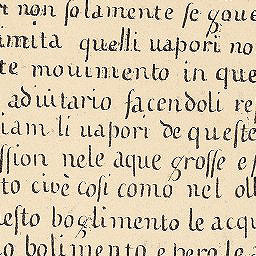 non solamente se gove
imita quelli vapori no
te mouimento in que
aduitario facendoli re
iam li uapori de queste
ssion nele aque grosse e
to civè cosi como nel ol
uesto boglimento le acqu
bolimento e pero le